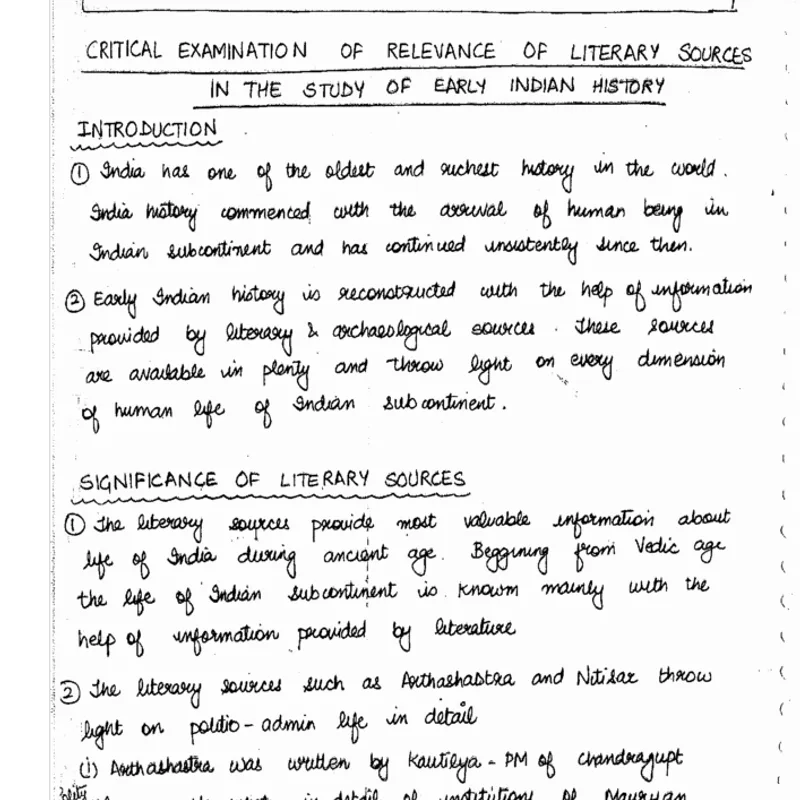 CRITICAL EXAMINATION OF RELEVANCE OF LITERARY SOURCES
IN THE STUDY OF EARLY INDIAN HISTORY
INTRODUCTION
① India has one of the oldest and richest history in the world.
India history commenced with the arrival of human being in
Indian subcontinent and has continued insistently since then.
② Early Indian history is reconstructed with the help of information
provided by literary & archaeological sources. These sources
are available in plenty and throw light on every dimension
of human life of Indian subcontinent.
SIGNIFICANCE OF LITERARY SOURCES
① The literary sources provide most valuable information about
life of India during ancient age. Beggining from Vedic age
the life of Indian subcontinent is known mainly with the
help of information provided by literature
② The literary sources such as Arthashastra and Nitisar throw
light on politio-admin life in detail
(i) Arthashastra was written by Kautilya - PM of Chandragupt
in detail of institutions of Mauryan